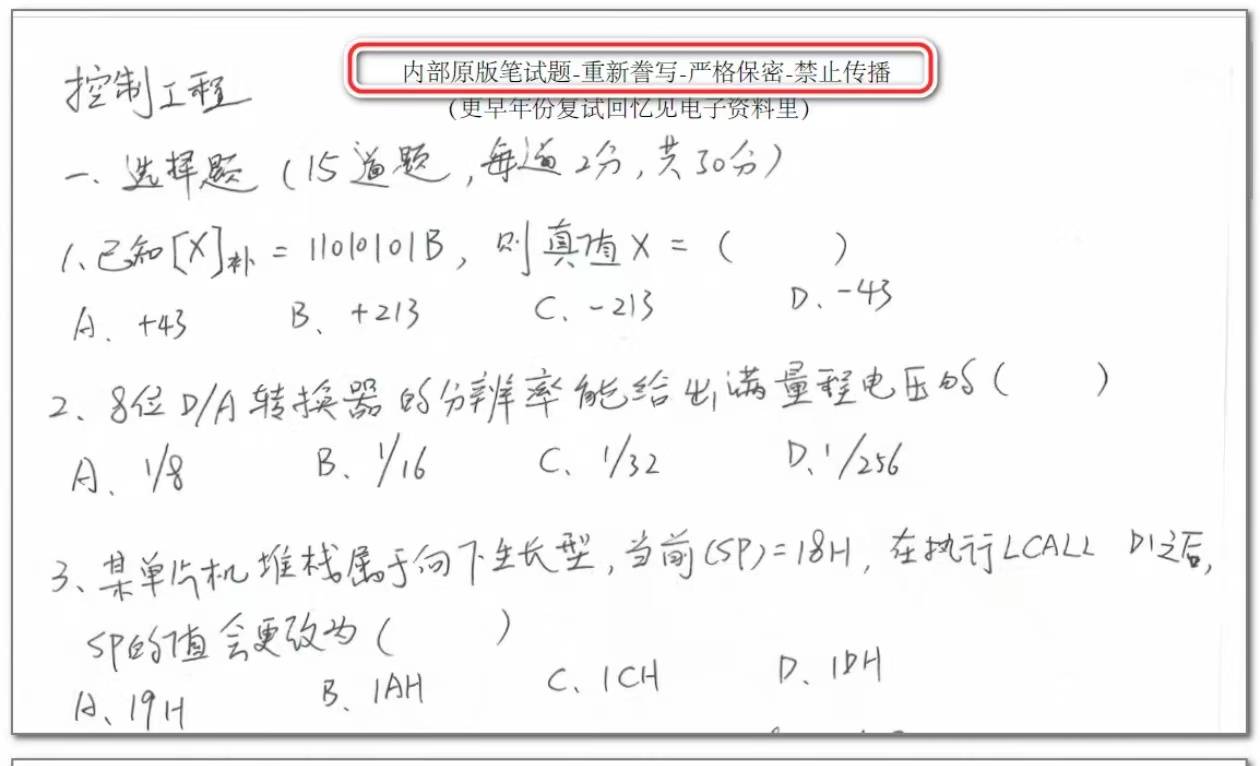 内部原版笔试题-重新誊写-严格保密-禁止传播
(更早年份复试回忆见电子资料里)
控制工程
一、选择题（15道题，每道2分，共30分）
1、已知[X]补 = 11010101B，则真值X =（ ）
A、+43 B、+213 C、-213 D、-43
2、8位D/A转换器的分辨率能给出满量程电压的（ ）
A、1/8 B、1/16 C、1/32 D、1/256
3、某单片机堆栈属于向下生长型，当前(SP)=18H，在执行LCALL D1之后，
SP的值会更改为（ ）
A、19H B、1AH C、1CH D、1DH